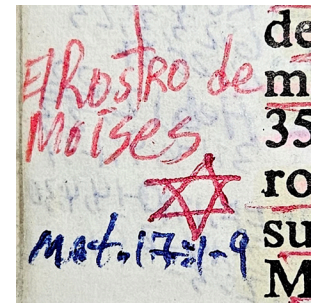 El Rostro de
Moises
Mat. 17:1-9
de
m
35
ro
su
M